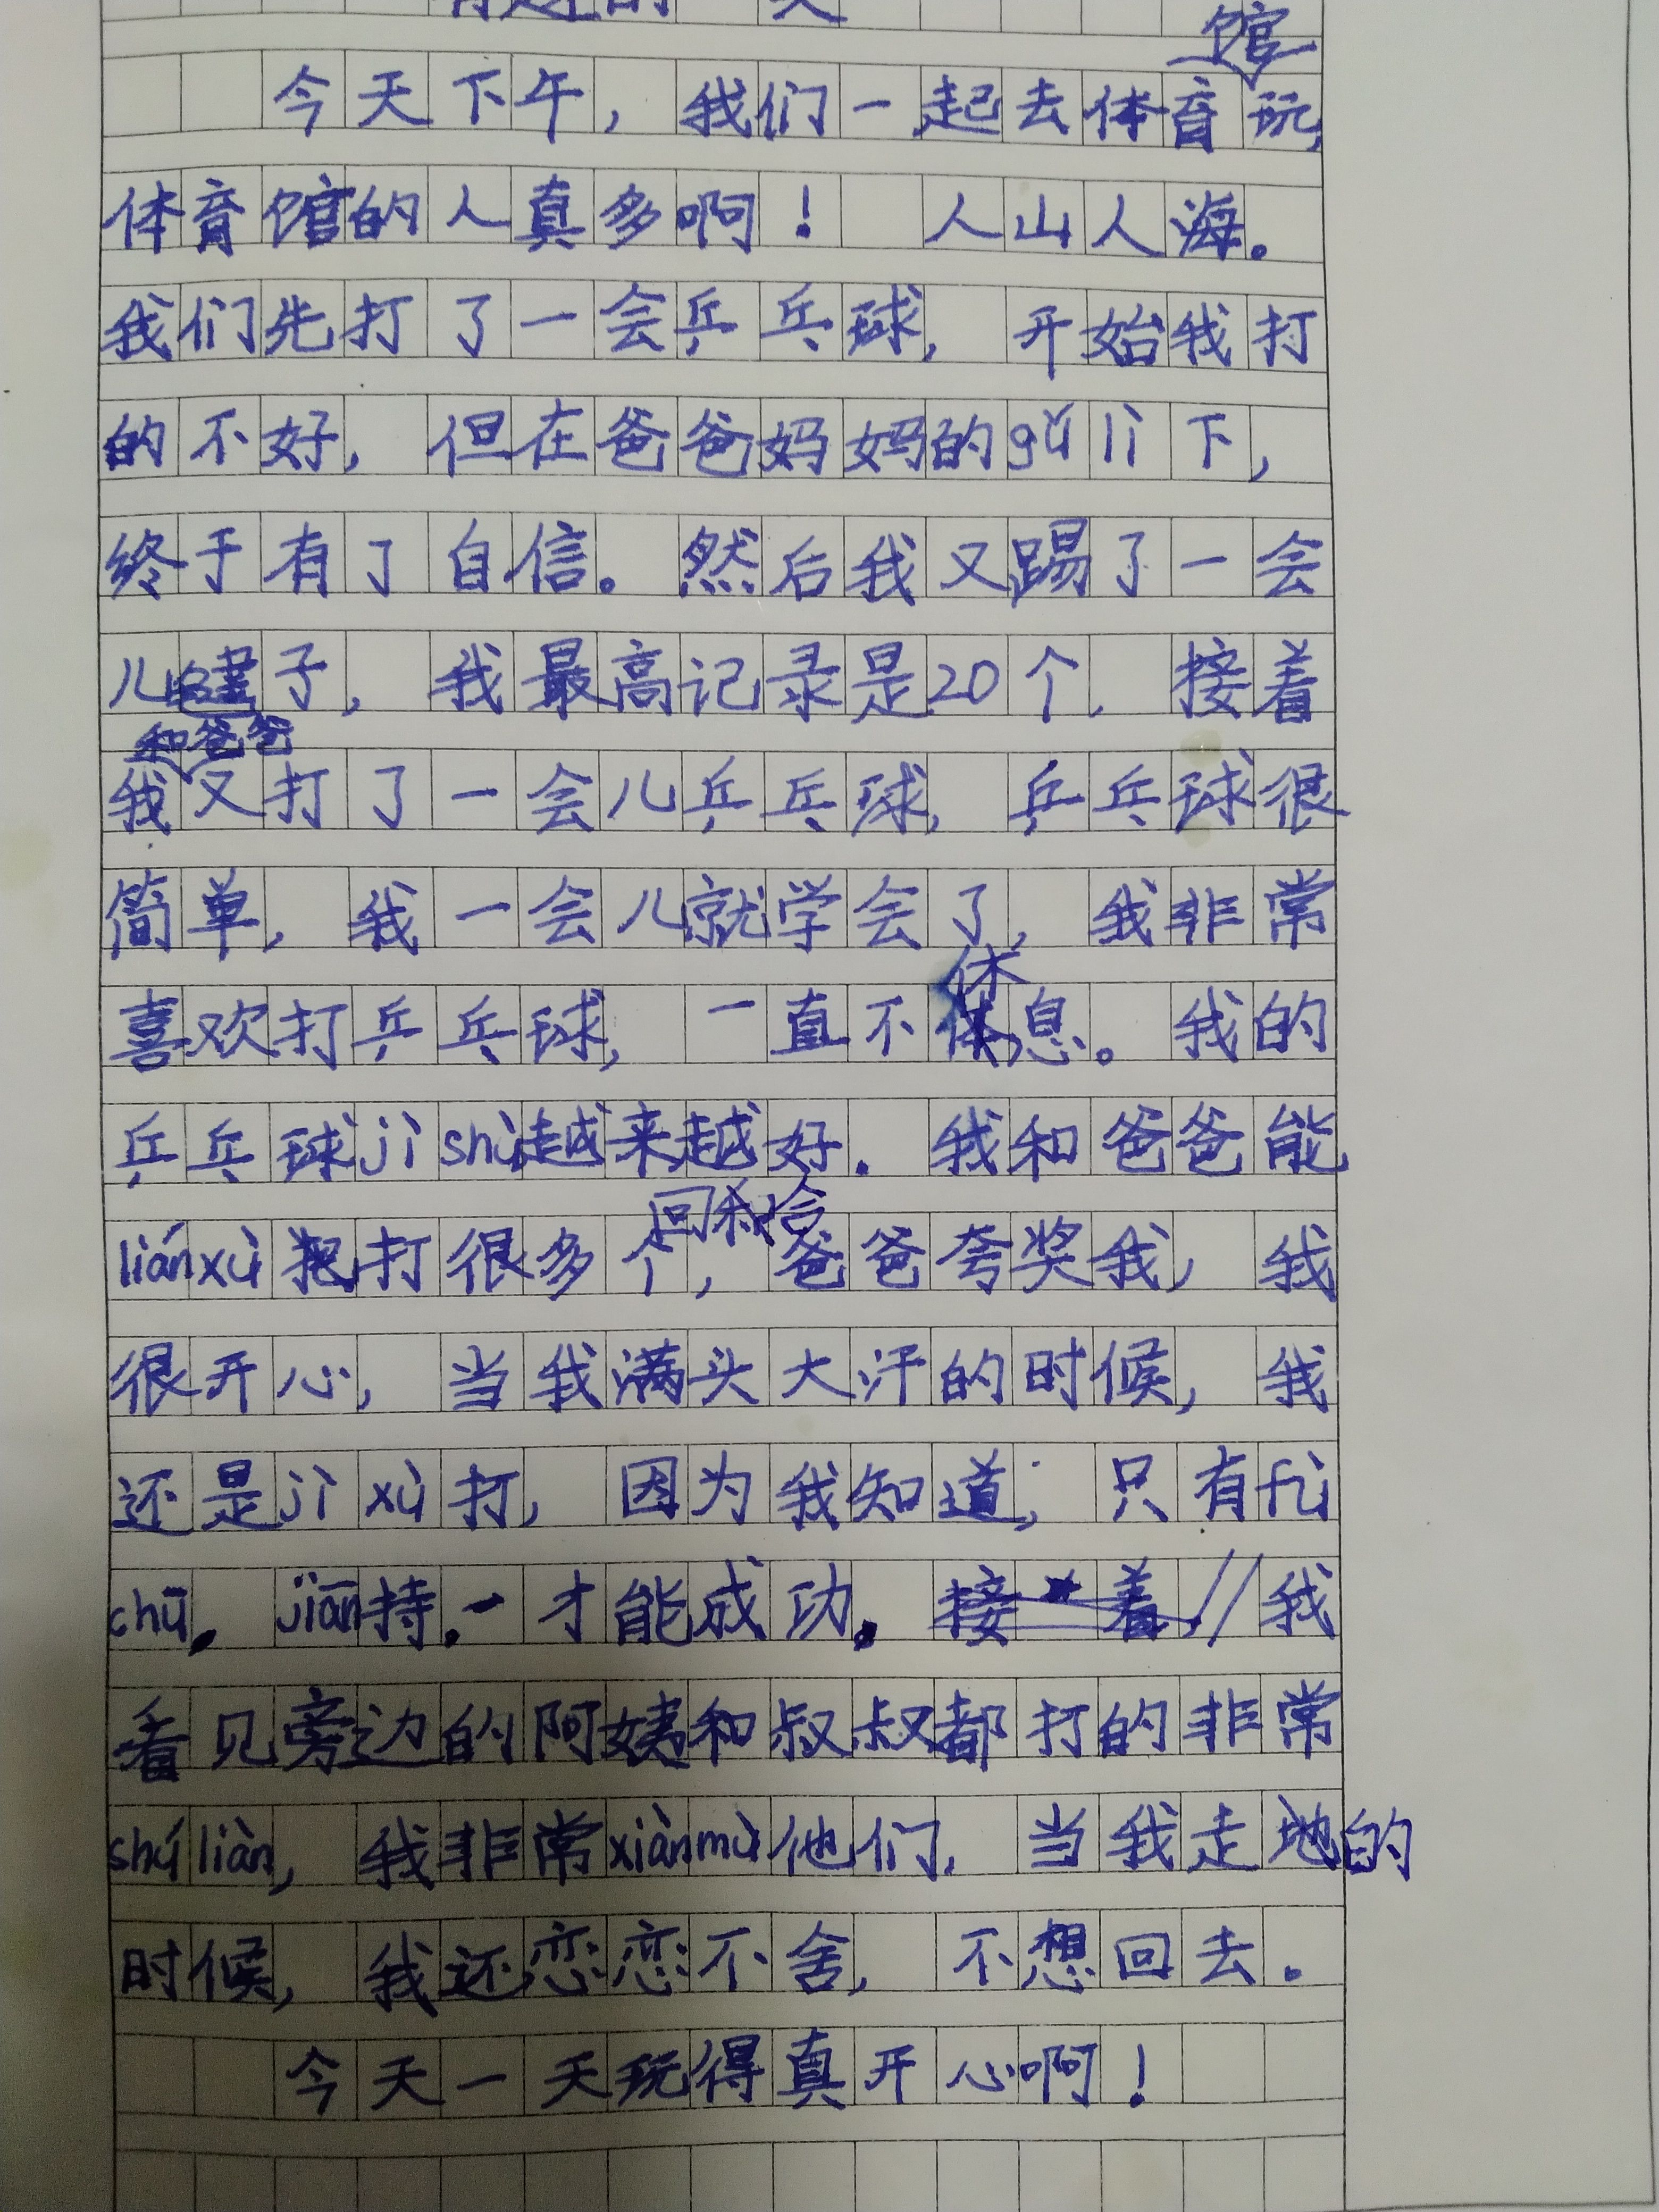 的 天
今天下午，我们一起去体育馆玩，
体育馆的人真多啊！人山人海。
我们先打了一会乒乓球，开始我打
的不好，但在爸爸妈妈的gǔ lì下，
终于有了自信。然后我又踢了一会
儿毽子，我最高记录是20个，接着
我和爸爸又打了一会儿乒乓球，乒乓球很
简单，我一会儿就学会了，我非常
喜欢打乒乓球，一直不休息。我的
乒乓球jì shù越来越好。我和爸爸能
lián xù 把打很多个回合，爸爸夸奖我，我
很开心，当我满头大汗的时候，我
还是jì xù打，因为我知道，只有fù
chū。jiān持。一才能成功。接着我
看见旁边的阿姨和叔叔都打的非常
shú liàn，我非常xiàn mù他们，当我走地的
时候，我还恋恋不舍，不想回去。
今天一天玩得真开心啊！